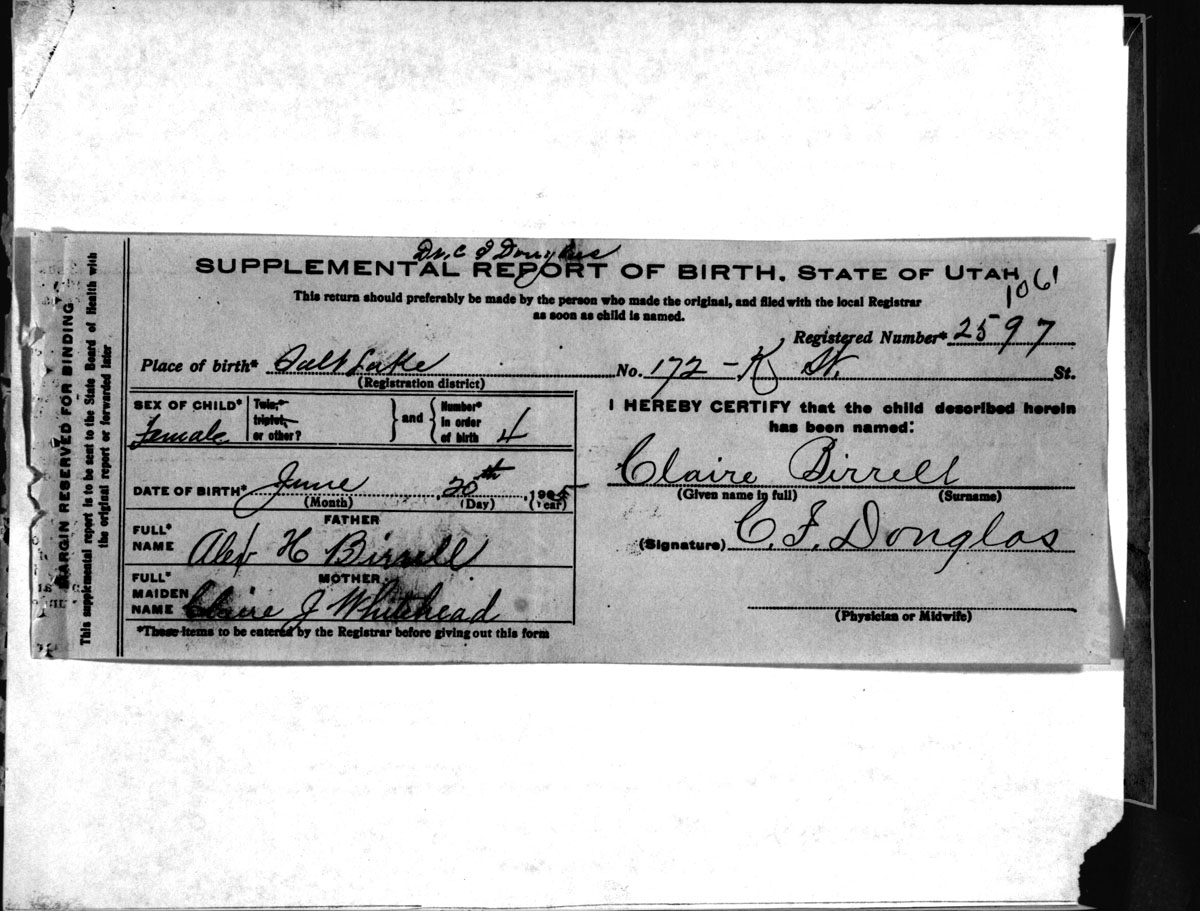 Dr. C F Douglas
SUPPLEMENTAL REPORT OF BIRTH, STATE OF UTAH
1061
This return should preferably be made by the person who made the original, and filed with the local Registrar
as soon as child is named.
Registered Number* 2597
Place of birth* Salt Lake No. 172 - K St. St.
(Registration district)
SEX OF CHILD* Female
Twin,
triplet,
or other?
and
Number*
in order
of birth 4
I HEREBY CERTIFY that the child described herein
has been named:
Claire Birrell
(Given name in full) (Surname)
DATE OF BIRTH* June 20th, 1905
(Month) (Day) (Year)
FATHER
FULL*
NAME Alex H Birrell
(Signature) C. F. Douglas
MOTHER
FULL*
MAIDEN
NAME Claire J Whitehead
(Physician or Midwife)
*These items to be entered by the Registrar before giving out this form
MARGIN RESERVED FOR BINDING
This supplemental report is to be sent to the State Board of Health with
the original report or forwarded later